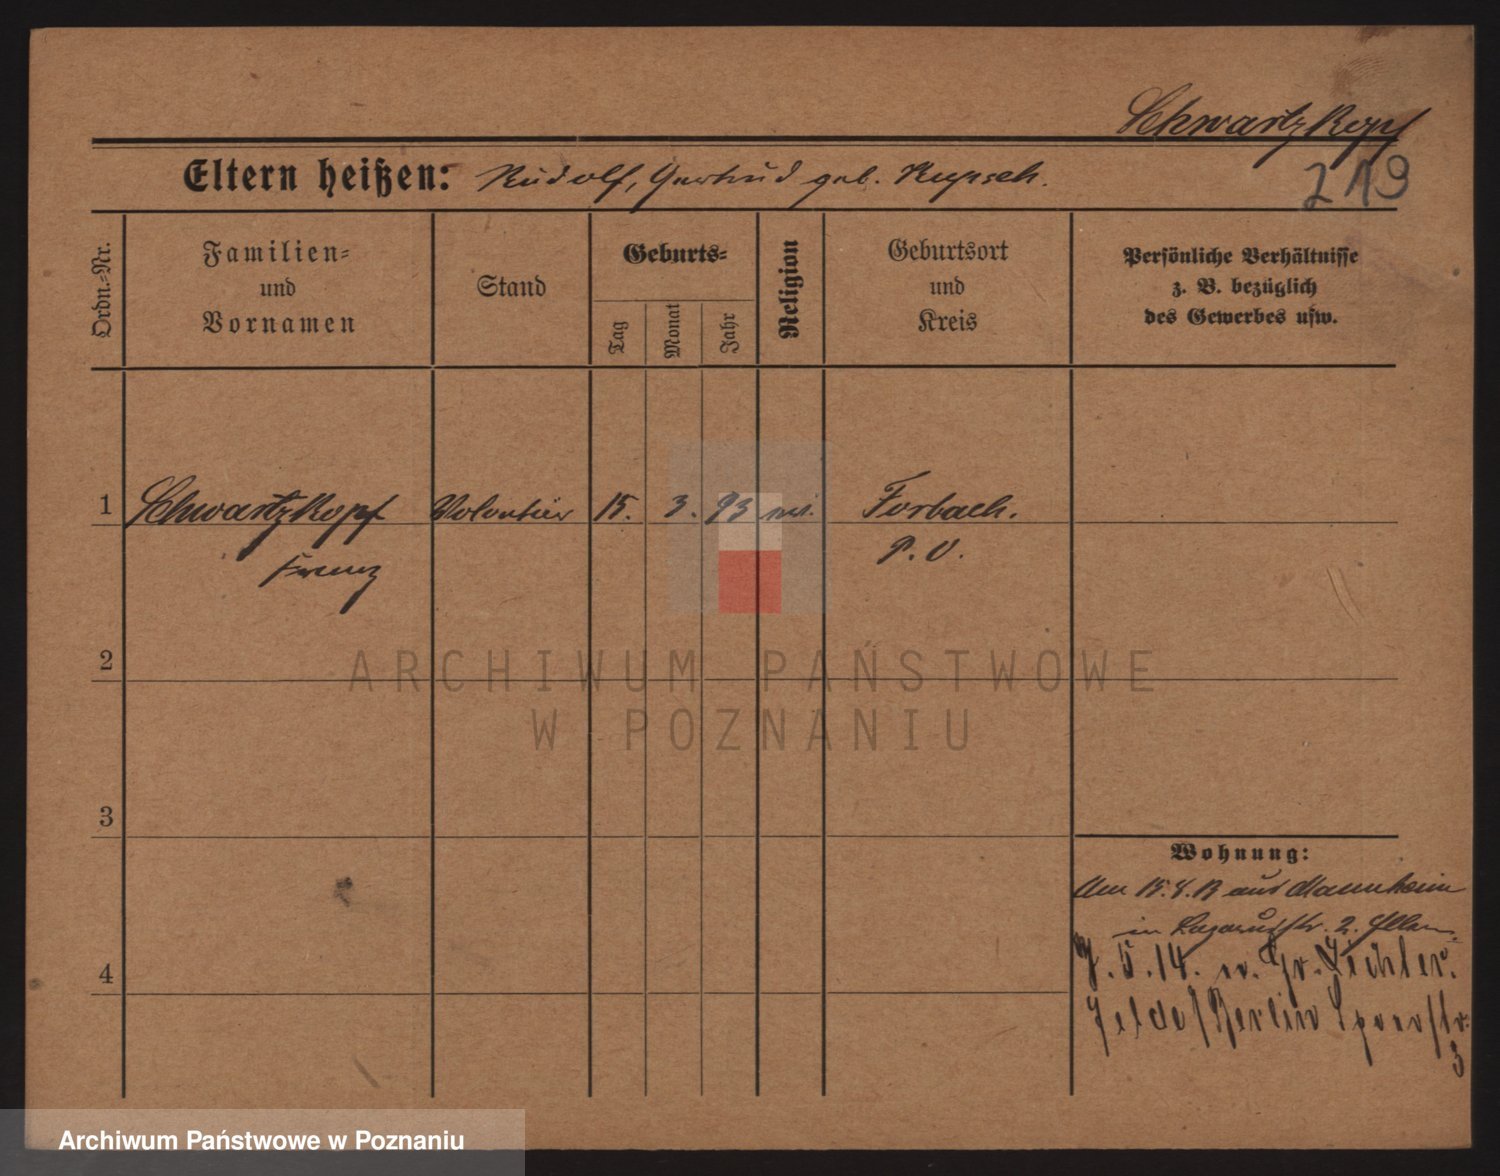 Schwartzkopf
219
Eltern heißen: Rudolf, Gertrud geb. Kupsch.
Ordn.-Nr.
Familien- und Vornamen
Stand
Geburts-
Tag
Monat
Jahr
Religion
Geburtsort und Kreis
Persönliche Verhältnisse
z. B. bezüglich
des Gewerbes usw.
1 Schwartzkopf Volontär 15. 3. 93 Forbach.
Franz
2
3
4
Wohnung:
Am 15.4.13 aus Mannheim
in 2.
5.14. Gr. Lichter.
felde/Berlin
3
ARCHIWUM PAŃSTWOWE
W POZNANIU
Archiwum Państwowe w Poznaniu